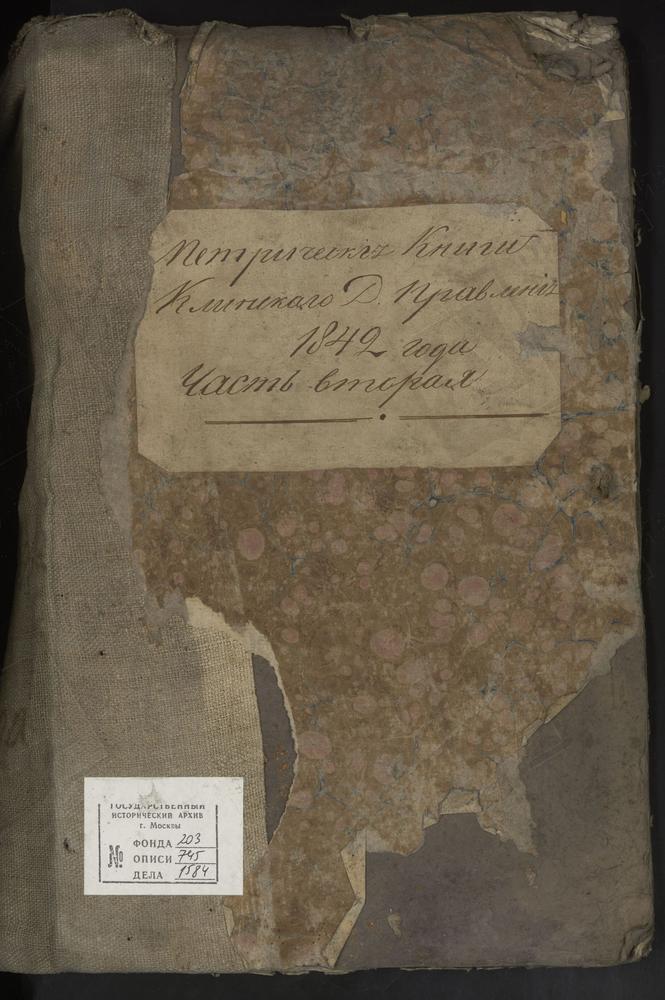 Метрическiя Книги
Клинскаго Д. Правленiя
1842 года
Часть вторая
ГОСУДАРСТВЕННЫЙ
ИСТОРИЧЕСКИЙ АРХИВ
г. Москвы
№
ФОНДА 203
ОПИСИ 745
ДЕЛА 1584